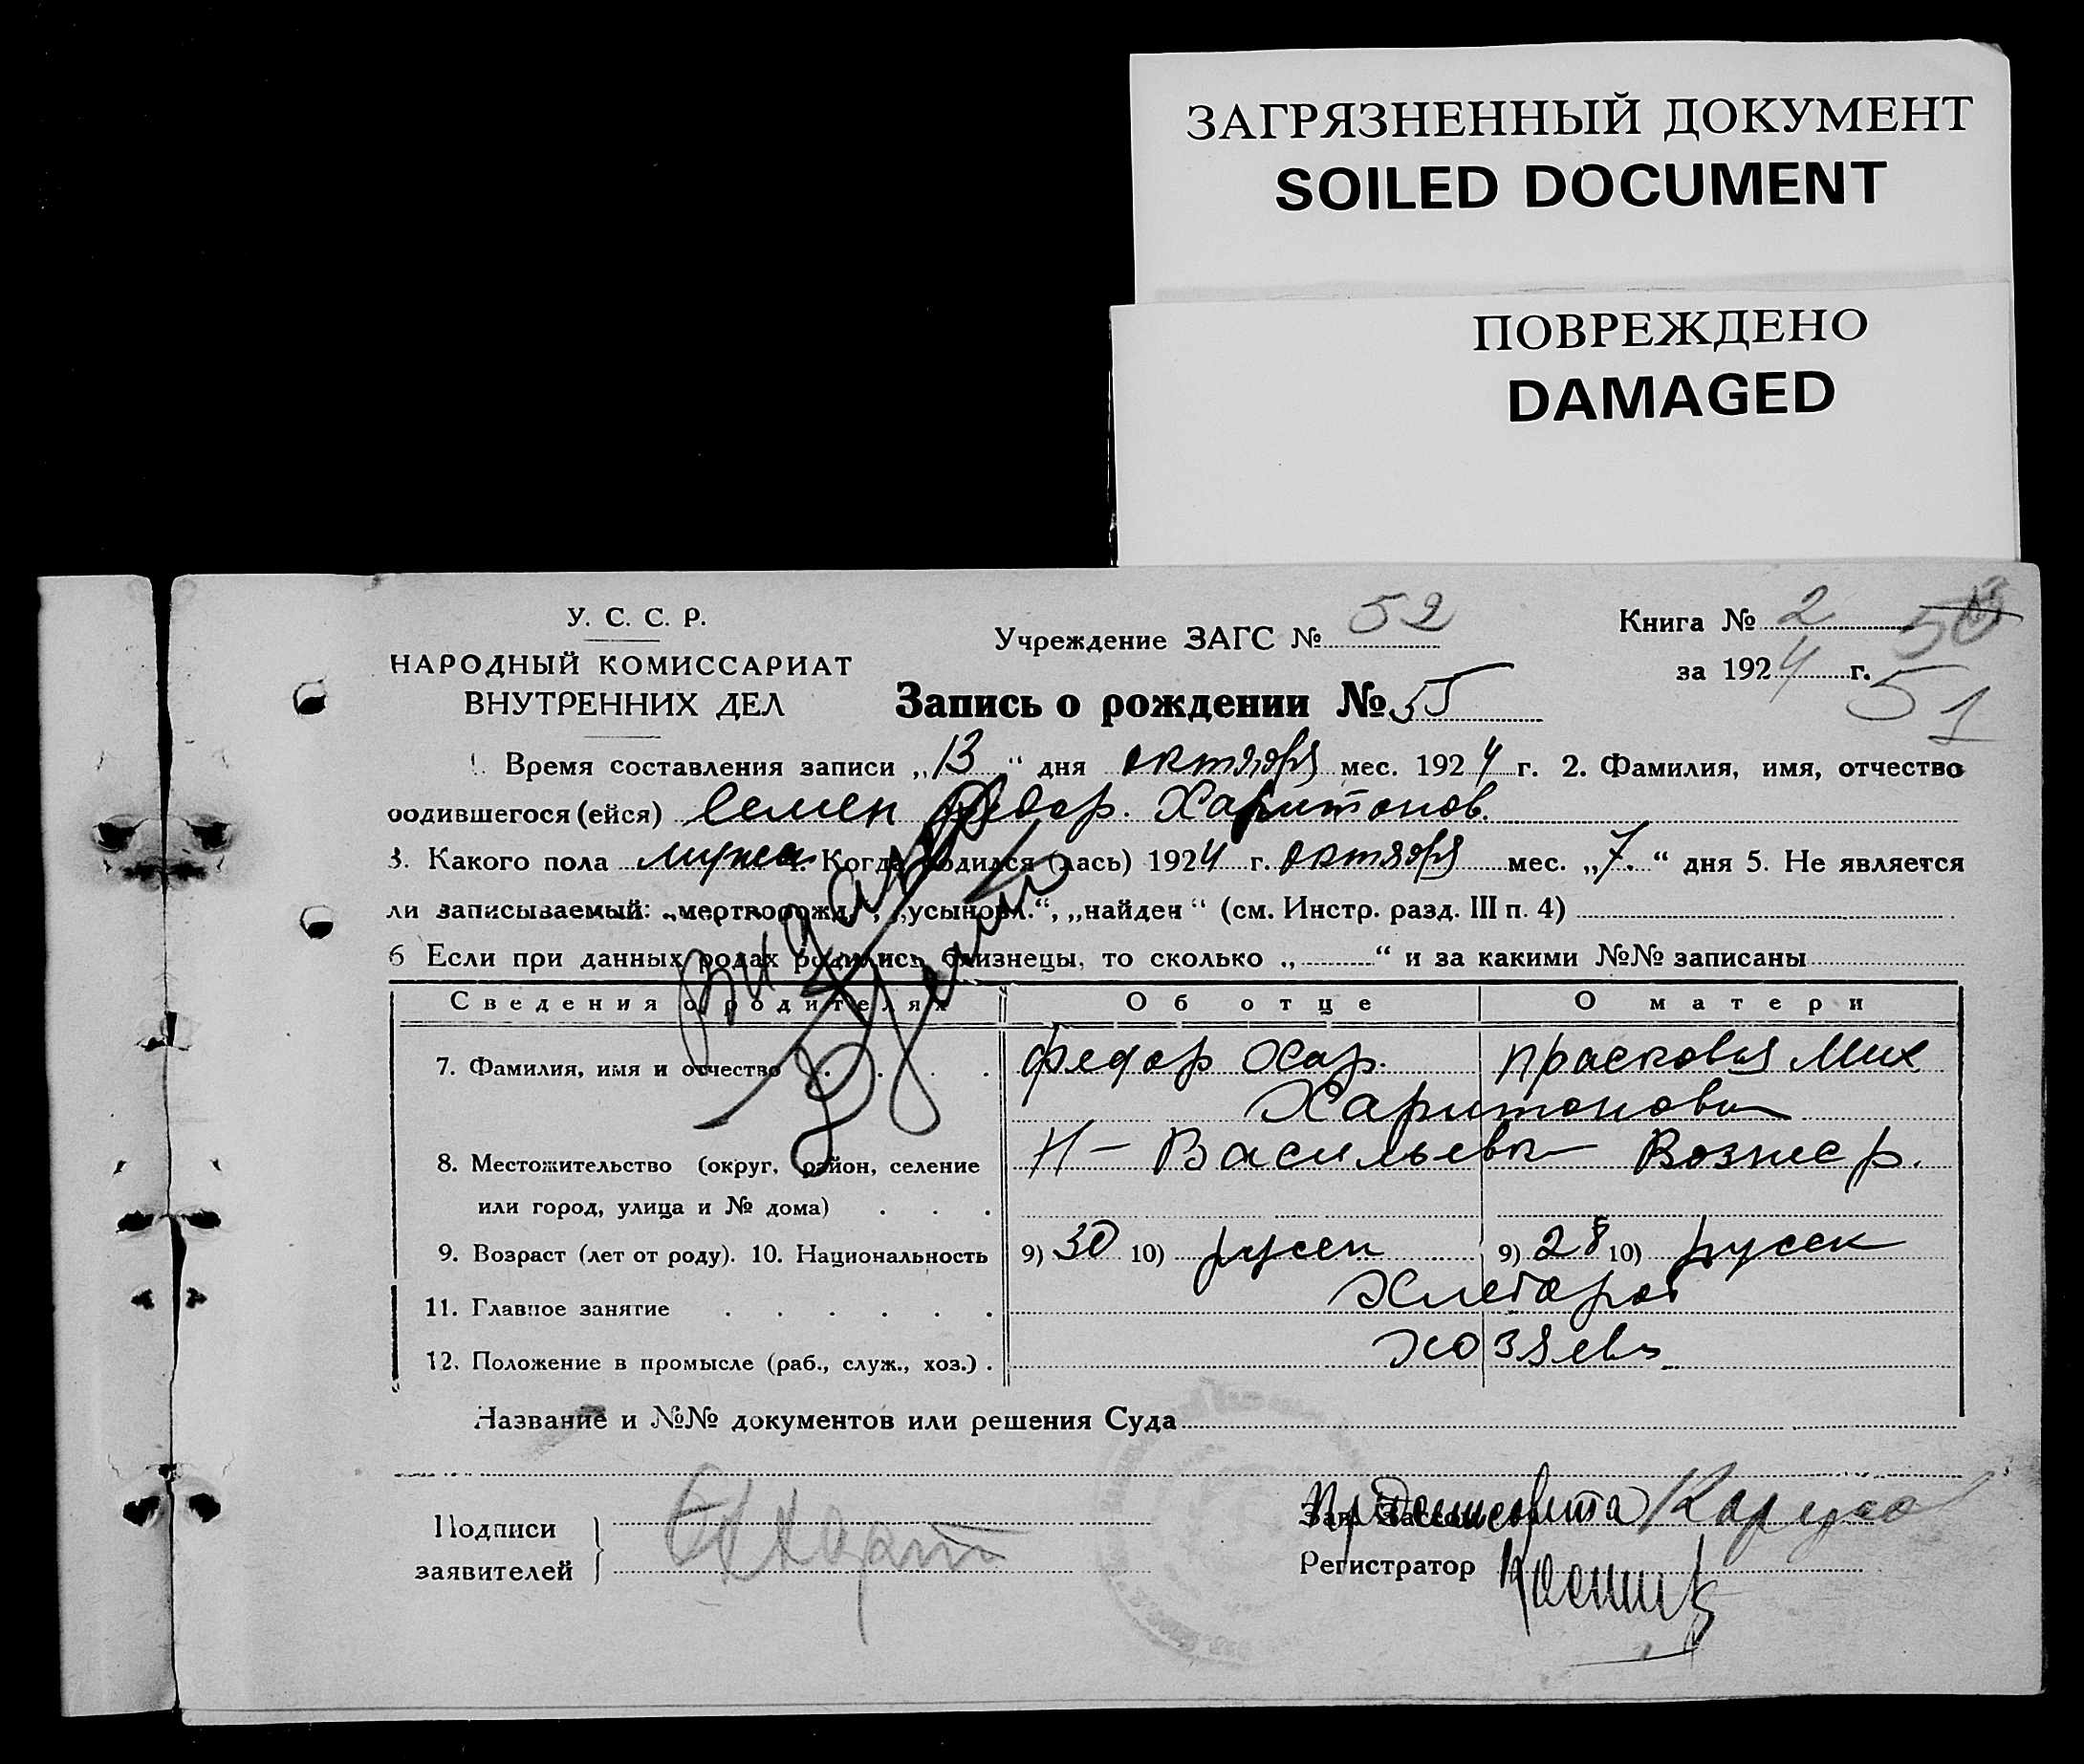 ЗАГРЯЗНЕННЫЙ ДОКУМЕНТ
SOILED DOCUMENT
ПОВРЕЖДЕНО
DAMAGED
У. С. С. Р.
НАРОДНЫЙ КОМИССАРИАТ
ВНУТРЕННИХ ДЕЛ
Учреждение ЗАГС № 52
Книга № 2 50
за 1924 г. 51
Запись о рождении № 55
1. Время составления записи „13“ дня октября мес. 1924 г. 2. Фамилия, имя, отчество
родившегося (ейся) Семен Федор. Харитонов.
3. Какого пола мужск 4. Когда родился (лась) 1924 г. октября мес. „7.“ дня 5. Не является
ли записываемый: „мертворожд.“, „усыновл.“, „найден“ (см. Инстр. разд. III п. 4)
6 Если при данных родах родились близнецы, то сколько „ “ и за какими №№ записаны
Сведения о родителях Об отце О матери
7. Фамилия, имя и отчество Федор Хар. Прасковья Мих
Харитоновы
8. Местожительство (округ, район, селение Н-Васильевка Вознес р.
или город, улица и № дома)
9. Возраст (лет от роду). 10. Национальность 9) 30 10) русск 9) 28 10) русск
11. Главное занятие Хлебороб
12. Положение в промысле (раб., служ., хоз.) хозяева
Название и №№ документов или решения Суда
Подписи
заявителей
Регистратор